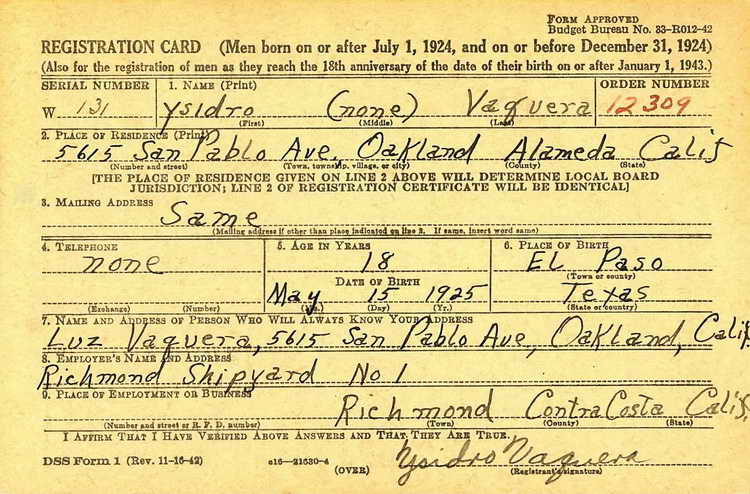 FORM APPROVED
Budget Bureau No. 33-R012-42
REGISTRATION CARD (Men born on or after July 1, 1924, and on or before December 31, 1924)
(Also for the registration of men as they reach the 18th anniversary of the date of their birth on or after January 1, 1943.)
SERIAL NUMBER 1. NAME (Print) ORDER NUMBER
W 131 Ysidro (none) Vaquera 12309
(First) (Middle) (Last)
2. PLACE OF RESIDENCE (Print)
5615 San Pablo Ave, Oakland Alameda Calif
(Number and street) (Town, township, village, or city) (County) (State)
[THE PLACE OF RESIDENCE GIVEN ON LINE 2 ABOVE WILL DETERMINE LOCAL BOARD
JURISDICTION; LINE 2 OF REGISTRATION CERTIFICATE WILL BE IDENTICAL]
3. MAILING ADDRESS
Same
(Mailing address if other than place indicated on line 2. If same, insert word same)
4. TELEPHONE 5. AGE IN YEARS 6. PLACE OF BIRTH
none 18 El Paso
(Town or county)
DATE OF BIRTH
May 15 1925 Texas
(Exchange) (Number) (Mo.) (Day) (Yr.) (State or country)
7. NAME AND ADDRESS OF PERSON WHO WILL ALWAYS KNOW YOUR ADDRESS
Luz Vaquera, 5615 San Pablo Ave, Oakland, Calif
8. EMPLOYER'S NAME AND ADDRESS
Richmond Shipyard No 1
9. PLACE OF EMPLOYMENT OR BUSINESS
Richmond Contra Costa Calif.
(Number and street or R. F. D. number) (Town) (County) (State)
I AFFIRM THAT I HAVE VERIFIED ABOVE ANSWERS AND THAT THEY ARE TRUE.
DSS Form 1 (Rev. 11-16-42) 16-21630-4 (OVER) Ysidro Vaquera
(Registrant's signature)